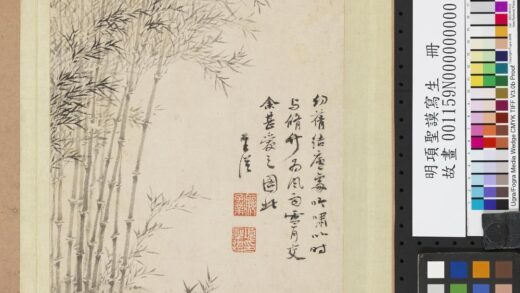 結廬處吟嘯以時
与脩竹為風雨雪月交
余甚愛之圖此
聖謨
明項聖謨寫生 冊
故畫 001159N000000000
Ugra/Fogra Media Wedge CMYK TIFF V3.0b Proof